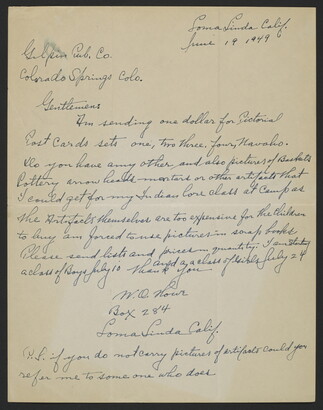 Loma Linda Calif.
June 19 1949
Gilpin Pub. Co.
Colorado Springs Colo.
Gentlemens
I'm sending one dollar for Pictorial
Post Cards sets one, two three, four, Navaho.
Do you have any other, and also pictures of Baskets
Pottery arrow heads mortars or other artifacts that
I could get for my Indian Lore class at Camp as
the Artifacts themselves are too expensive for the children
to buy am forced to use pictures in scrap books
Please send lists and prices in quantity. I am starting
a class of Boys July 10 and a class of Girls July 24
Thank you
W.O.
Box 284
Loma Linda Calif.
P.S. if you do not carry pictures of artifacts could you
refer me to some one who does